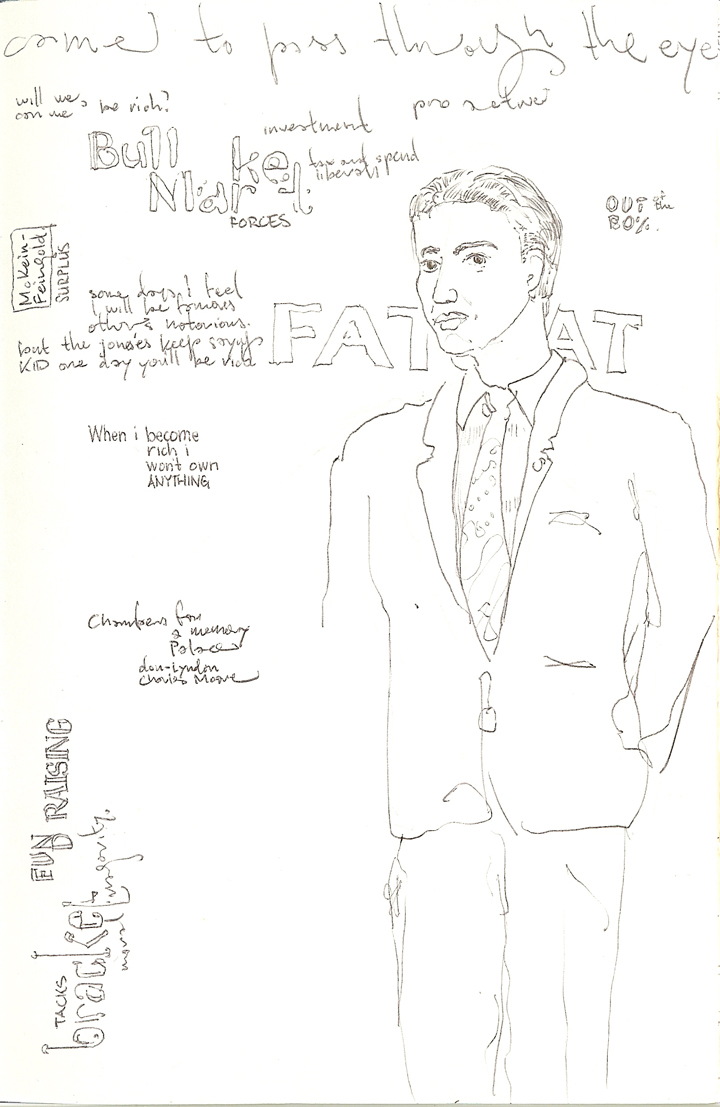 camel to pass through the eye
will we
can we
be rich?
investment
pro active
Bull
Market
tax and spend
liberals
FORCES
OUT of the
BOX.
McKein-
Feingold
SURPLUS
some days I feel
I will be famous
others notorious.
but the joneses keep saying
KID one day you'll be rich
FAT CAT
When i become
rich i
won't own
ANYTHING
Chambers for
a memory
Palace
don-Lyndon
Charles Moore
FUND RAISING
TACKS
bracket
moral